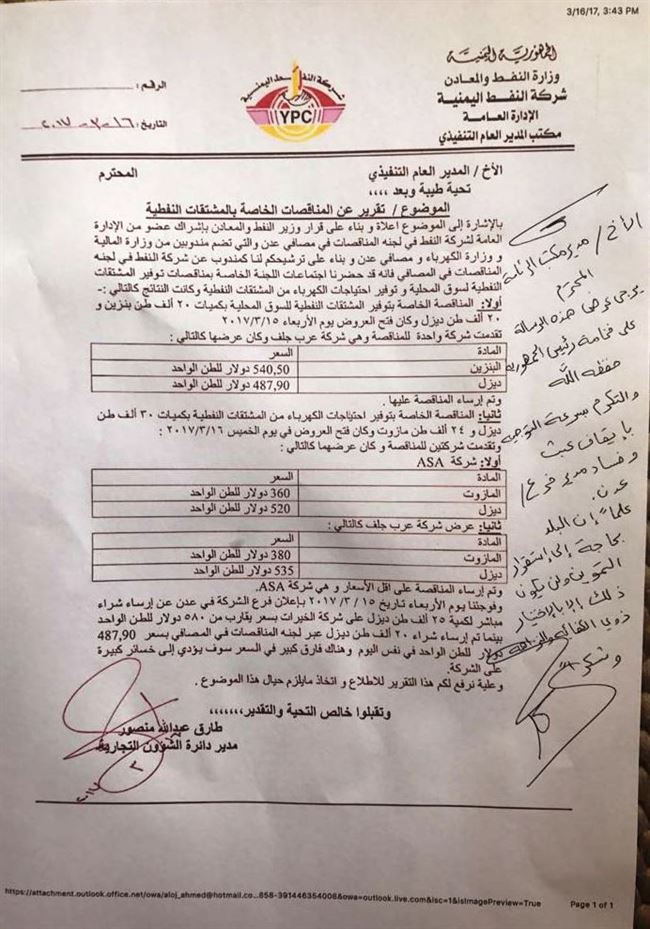 3/16/17, 3:43 PM
الجمهورية اليمنية
وزارة النفط والمعادن
شركة النفط اليمنية
الإدارة العامة
مكتب المدير العام التنفيذي
شركة النفط اليمنية
YPC
الرقم:
التاريخ: ١٦-٣-٢٠١٧
الأخ / المدير العام التنفيذي المحترم
تحية طيبة وبعد ,,,,
الموضوع / تقرير عن المناقصات الخاصة بالمشتقات النفطية
بالإشارة إلى الموضوع اعلاة و بناء على قرار وزير النفط والمعادن بإشراك عضو من الإدارة
العامة لشركة النفط في لجنه المناقصات في مصافي عدن والتي تضم مندوبين من وزارة المالية
و وزارة الكهرباء و مصافي عدن و بناء على ترشيحكم لنا كمندوب عن شركة النفط في لجنه
المناقصات في المصافي فانه قد حضرنا اجتماعات اللجنة الخاصة بمناقصات توفير المشتقات
النفطية لسوق المحلية و توفير احتياجات الكهرباء من المشتقات النفطية وكانت النتائج كالتالي :-
أولا: المناقصة الخاصة بتوفير المشتقات النفطية للسوق المحلية بكميات ٢٠ ألف طن بنزين و
٢٠ ألف طن ديزل وكان فتح العروض يوم الأربعاء ٢٠١٧/٣/١٥
تقدمت شركة واحدة للمناقصة وهي شركة عرب جلف وكان عرضها كالتالي:
المادة السعر
البنزين 540,50 دولار للطن الواحد
ديزل 487,90 دولار للطن الواحد
وتم إرساء المناقصة عليها .
ثانيا: المناقصة الخاصة بتوفير احتياجات الكهرباء من المشتقات النفطية بكميات ٣٠ ألف طن
ديزل و ٢٤ ألف طن مازوت وكان فتح العروض في يوم الخميس ٢٠١٧/٣/١٦ :
وتقدمت شركتين للمناقصة و كان عرضهما كالتالي:
أولا: شركة ASA
المادة السعر
المازوت 360 دولار للطن الواحد
ديزل 520 دولار للطن الواحد
ثانيا: عرض شركة عرب جلف كالتالي :
المادة السعر
المازوت 380 دولار للطن الواحد
ديزل 535 دولار للطن الواحد
وتم إرساء المناقصة على اقل الأسعار و هي شركة ASA.
وفوجئنا يوم الأربعاء تاريخ ١٥ /٣ /٢٠١٧ بإعلان فرع الشركة في عدن عن إرساء شراء
مباشر لكمية ٢٥ ألف طن ديزل على شركة الخيرات بسعر يقارب من ٥٨٠ دولار للطن الواحد
بينما تم إرساء شراء ٢٠ ألف طن ديزل عبر لجنه المناقصات في المصافي بسعر 487,90
دولار للطن الواحد في نفس اليوم وهناك فارق كبير في السعر سوف يؤدي إلى خسائر كبيرة
على الشركة.
وعلية نرفع لكم هذا التقرير للاطلاع و اتخاذ مايلزم حيال هذا الموضوع .
وتقبلوا خالص التحية والتقدير,,,,,,,
طارق عبدالله منصور
مدير دائرة الشؤون التجارية
الأخ / مدير مكتب الرئاسة
المحترم
يرجى عرض هذه الرسالة
على فخامة رئيس الجمهورية
حفظه الله
والتكرم سرعة التوجيه
بإيقاف عبث
وفساد مدير فرع /
عدن.
علماً إن البلد
بحاجة إلى إستقرار
التموين ولن يكون
ذلك إلا بإختيار
ذوي الكفاءة والنزاهة
وشكراً
https://attachment.outlook.office.net/owa/aloj_ahmed@hotmail.co...658-391446354008&owa=outlook.live.com&isc=1&isImagePreview=True
Page 1 of 1